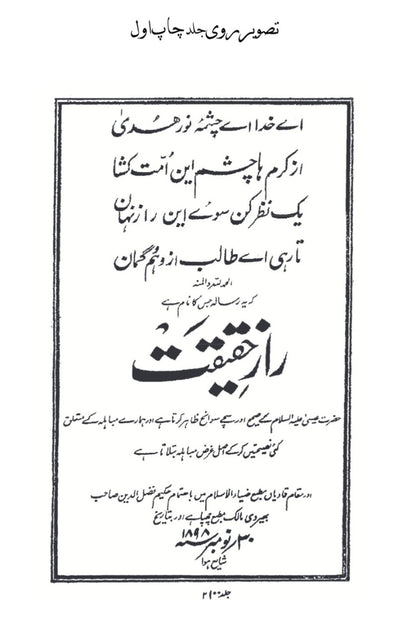 تصویر روی جلد چاپ اول
اے خدا اے چشمۂ نور ھُدیٰ
از کرم ہا چشم این اُمّت کشا
یک نظر کن سوے این راز نہان
تا رہی اے طالب از وہم و گمان
الحمد للہ والمنہ
کہ یہ رسالہ جس کا نام ہے
راز حقیقت
حضرت عیسیٰ علیہ السلام کے صحیح اور سچے سوانح ظاہر کرتا ہے اور ہمارے مباہلہ کے متعلق
کئی نصیحتیں کر کے اصل غرض مباہلہ بتلاتا ہے
اور بمقام قادیان مطبع ضیاء الاسلام میں باہتمام حکیم فضل الدین صاحب
بھیروی مالک مطبع چھپا ہے اور بتاریخ
۳۰ نومبر ۱۸۹۸
شایع ہوا
جلد ۲۱۰۰